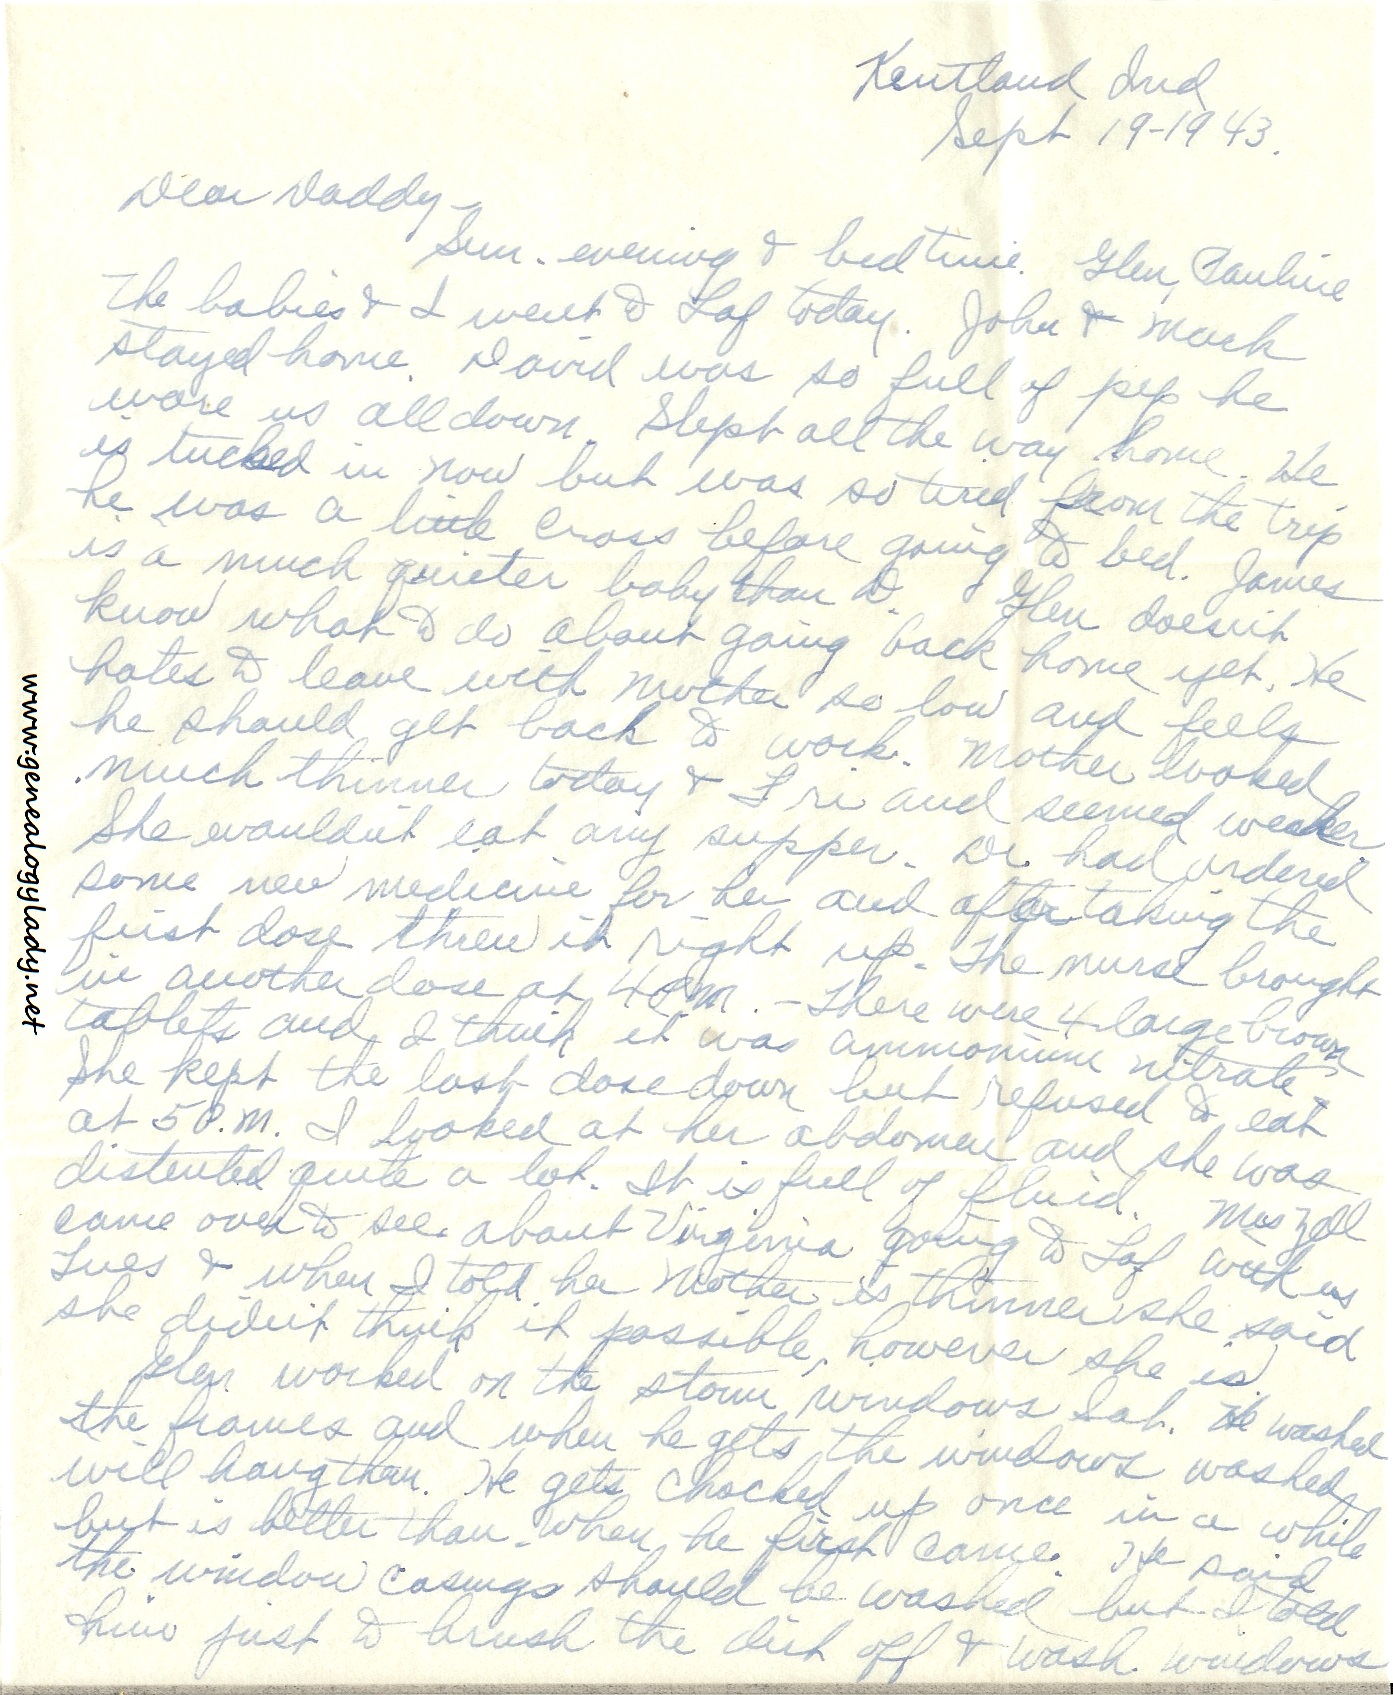 Kentland Ind
Sept 19-1943.
Dear Daddy-
Sun. evening & bedtime. Glen, Pauline
the babies & I went to Laf today. John & Mack
stayed home. David was so full of pep he
wore us all down. Slept all the way home. He
is tucked in now but was so tired from the trip
he was a little cross before going to bed. James
is a much quieter baby than D. Glen doesn't
know what to do about going back home yet. He
hates to leave with Mother so low and feels
he should get back to work. Mother looked
much thinner today & Fri and seemed weaker.
She wouldn't eat any supper. Dr. had ordered
some new medicine for her and after taking the
first dose threw it right up. The nurse brought
in another dose at 4 P.M. - There were 4 large brown
tablets and I think it was ammonium nitrate.
She kept the last dose down but refused to eat
at 5 P.M. I looked at her abdomen and she was
distented quite a lot. It is full of fluid. Mrs Zell
came over to see about Virginia going to Laf with us
Tues & when I told her Mother is thinner she said
she didn't think it possible, however she is.
Glen worked on the storm windows Sat. He washed
the frames and when he gets the windows washed
will hang them. He gets chocked up once in a while
but is better than when he first came. He said
the window casings should be washed but I told
him just to brush the dirt off & wash windows
www.genealogylady.net